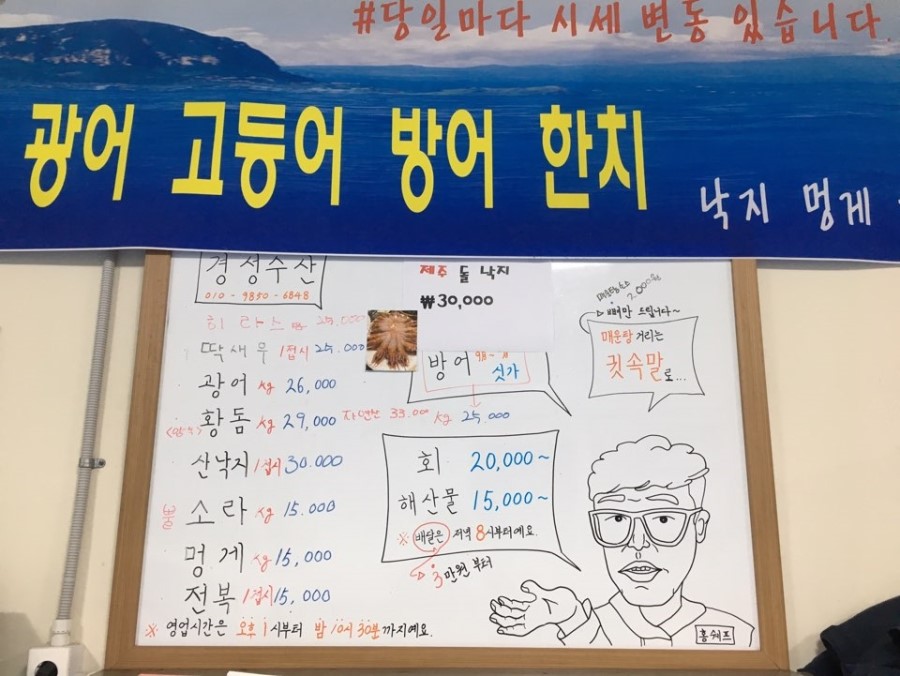 #당일마다 시세 변동 있습니다.
광어 고등어 방어 한치
낙지 멍게
경성수산
010-9850-6848
히라스 kg 25,000
딱새우 1접시 25.000
광어 kg 26,000
황돔 kg 29,000 자연산 33.000
산낙지 1접시 30.000
뿔 소라 kg 15.000
멍게 kg 15,000
전복 1접시 15,000
※ 영업시간은 오후 1시부터 밤 10시 30분까지예요.
제주 돌 낙지
₩30,000
방어 싯가
kg 25.000
회 20,000~
해산물 15,000~
※ 배달은 저녁 8시부터예요.
3만원 부터
2.000원
빼만 드립니다~
매운탕 거리는
귓속말로...
홍쉐프